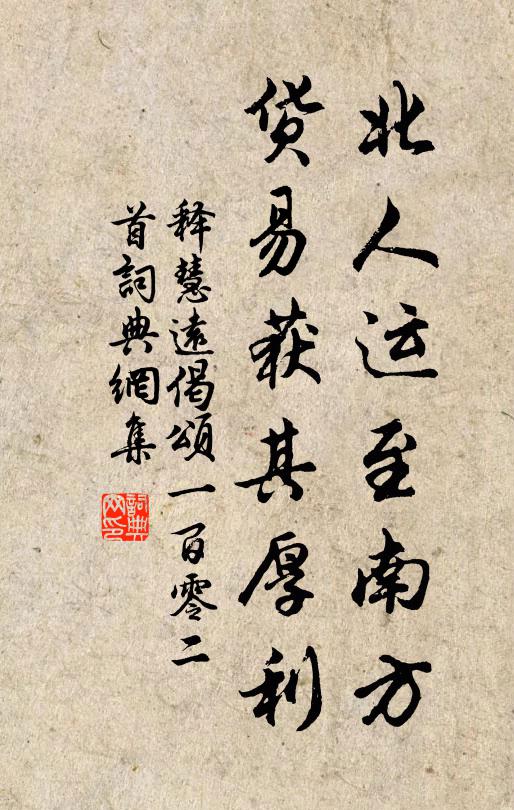 北人运至南方
货易获其厚利
释慧遠偈頌一百零二
首詞典網集
詞典网印